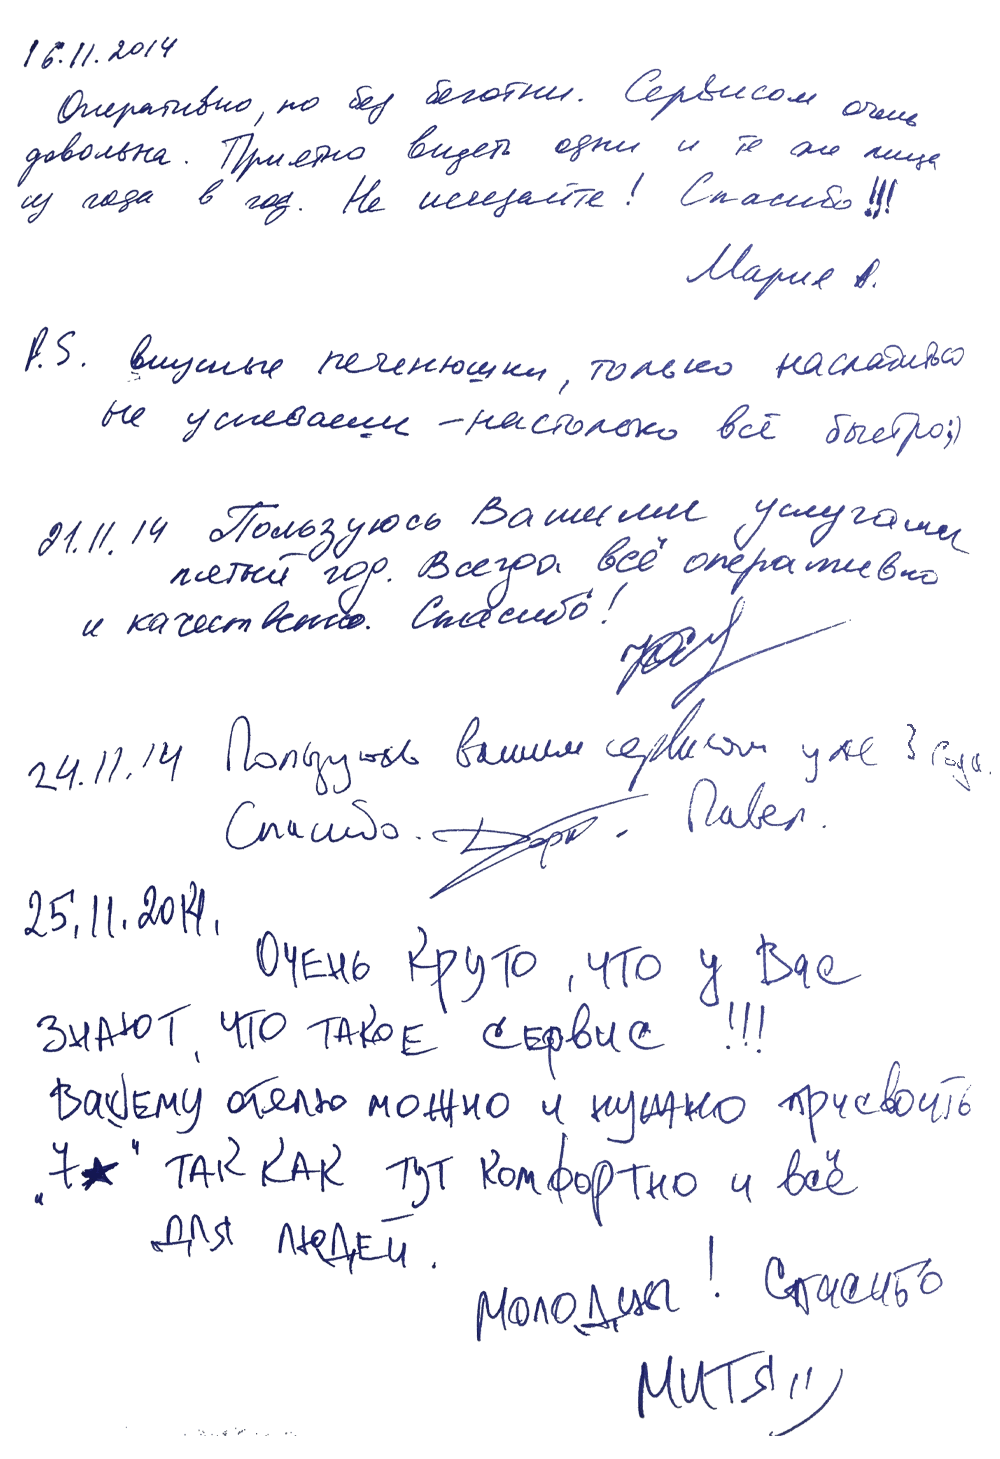 16.11.2014
Оперативно, но без беготни. Сервисом очень
довольна. Приятно видеть одни и те же лица
из года в год. Не исчезайте! Спасибо!!!
Мария А.
P.S. вкусные печенюшки, только насладиться
не успеваешь - настолько всё быстро;)
21.11.14 Пользуюсь Вашими услугами
пятый год. Всегда всё оперативно
и качественно. Спасибо!
24.11.14 Пользуюсь вашим сервисом уже 3 года.
Спасибо. Павел.
25.11.2014.
Очень круто, что у Вас
знают, что такое сервис !!!
Вашему отелю можно и нужно присвоить
„7★" так как тут комфортно и всё
для людей.
Молодцы! Спасибо
Митя :)